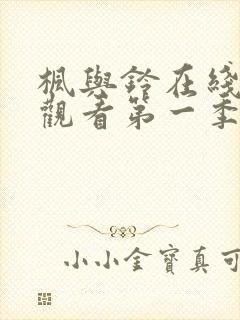 楓與鈴在綫
觀看第一季
小小金寶真可